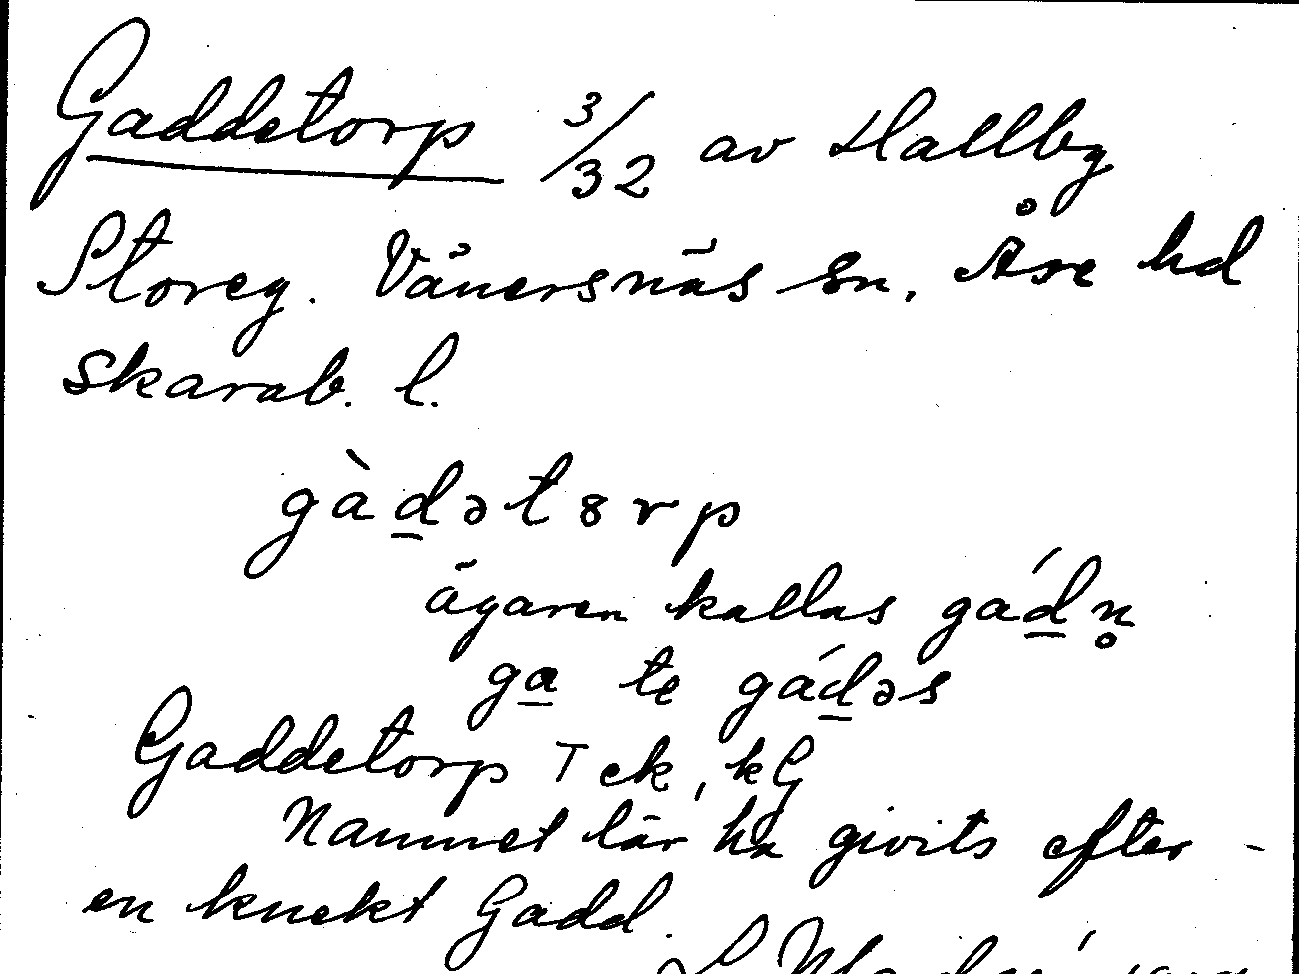 Gaddetorp 3/32 av Hallby
Storeg. Vänersnäs sn, Åse hd
Skarab. l.
gàd̲ət8rp
ägaren kallas gád̲n̥
ga̲ te gád̲əs
Gaddetorp T ek, kG
Namnet lär ha givits efter
en knekt Gadd.